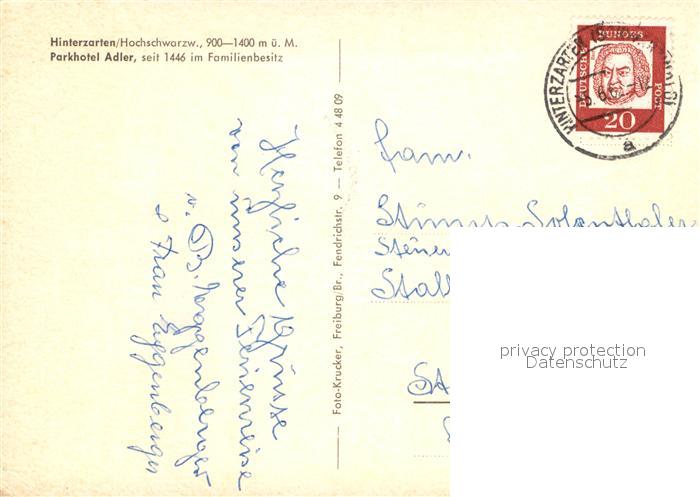 Hinterzarten/Hochschwarzw., 900—1400 m ü. M.
Parkhotel Adler, seit 1446 im Familienbesitz
Herzliche Grüsse
von unserer Ferienreise
v. B. Eggenberger
& Frau Eggenberger
Foto-Krucker, Freiburg/Br., Fendrichstr. 9 — Telefon 4 48 09
HINTERZARTEN
a
DEUTSCHE BUNDES POST
20
Fam.
Solenthaler
Steuer
Stall
St
privacy protection
Datenschutz